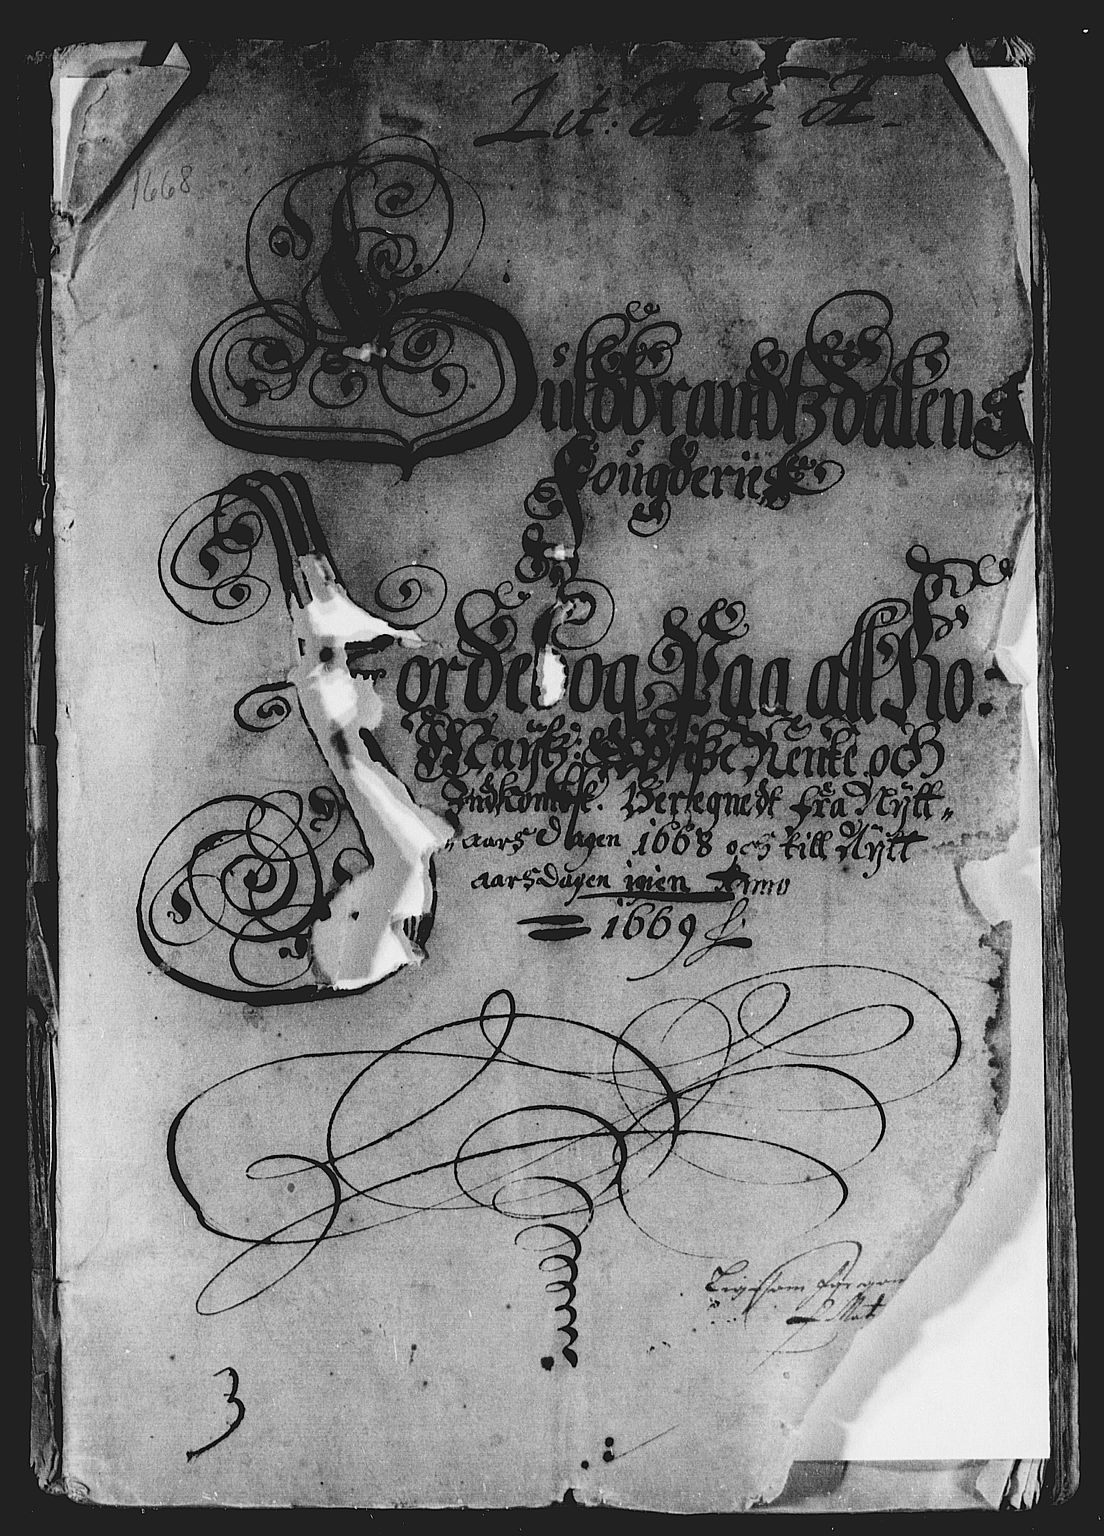 Lit: A A A.
1668
Guldbrandtzdalens
Fougderie
Jordebog Paa all Ko:
Maÿtz: Wiße Rente och
Indkombst. Beregnedt fra Nÿtt„
„aarsdagen 1668 och till Nÿtt
aarsdagen igien Anno
1669
Ligesom
3